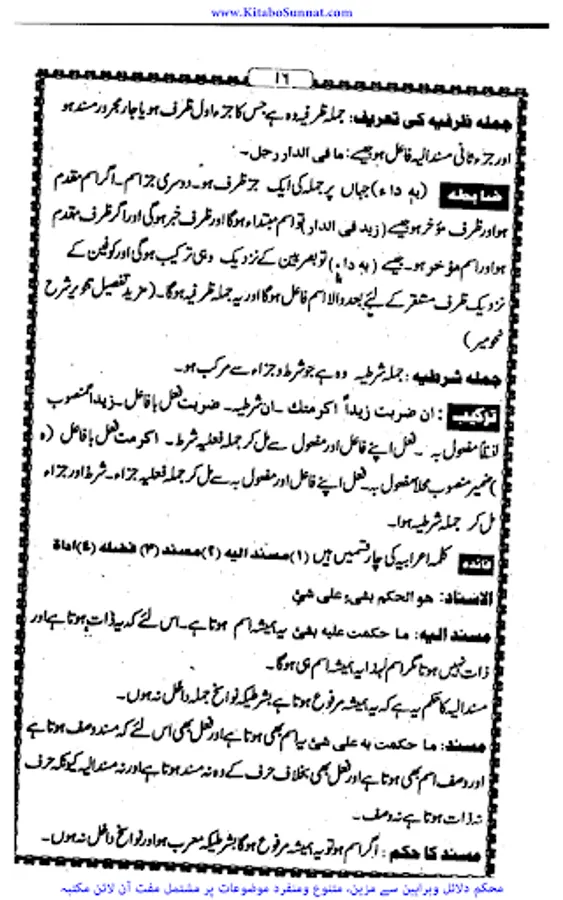 www.KitaboSunnat.com
۱٦
جملہ ظرفیہ کی تعریف: جملہ ظرفیہ وہ ہے جس کا جزء اول ظرف ہو یا جار مجرور مسند ہو
اور جزء ثانی مسند الیہ فاعل ہو جیسے: ما فی الدار رجل۔
ضابطہ (بہ داء) جہاں پر جملہ کی ایک جز ظرف ہو۔ دوسری جز اسم۔ اگر اسم مقدم
ہو اور ظرف مؤخر ہو جیسے (زید فی الدار) تو اسم مبتداء ہوگا اور ظرف خبر ہوگی اور اگر ظرف مقدم
ہو اور اسم مؤخر ہو۔ جیسے (بہ داء) تو بصریین کے نزدیک وہی ترکیب ہوگی اور کوفین کے
نزدیک ظرف مستقر کے لئے بعد والا اسم فاعل ہوگا اور یہ جملہ ظرفیہ ہوگا۔ (مزید تفصیل تنویر شرح
نحومیر)
جملہ شرطیہ: جملہ شرطیہ وہ ہے جو شرط و جزاء سے مرکب ہو۔
ترکیب: ان ضربت زیداً اکرمتك۔ ان شرطیہ۔ ضربت فعل با فاعل۔ زیداً منصوب
لفظاً مفعول بہ۔ فعل اپنے فاعل اور مفعول سے مل کر جملہ فعلیہ شرط۔ اکرمت فعل با فاعل (ہ
) ضمیر منصوب محلاً مفعول بہ۔ فعل اپنے فاعل اور مفعول بہ سے مل کر جملہ فعلیہ جزاء۔ شرط اور جزاء
مل کر جملہ شرطیہ ہوا۔
فائدہ کلمہ اعرابیہ کی چار قسمیں ہیں (۱) مسند الیہ (۲) مسند (۳) فضلہ (٤) اداة
الاسناد: هو الحكم بشیء علی شئ
مسند الیہ: ما حکمت علیه بشئ یہ ہمیشہ اسم ہوتا ہے۔ اس لئے کہ یہ ذات ہوتا ہے اور
ذات نہیں ہوتا مگر اسم لہذا یہ ہمیشہ اسم ہی ہوگا۔
مسند الیہ کا حکم یہ ہے کہ یہ ہمیشہ مرفوع ہوتا ہے بشرطیکہ نواسخ جملہ داخل نہ ہوں۔
مسند: ما حکمت به علی شئ یہ اسم بھی ہوتا ہے اور فعل بھی اس لئے کہ مسند وصف ہوتا ہے
اور وصف اسم بھی ہوتا ہے اور فعل بھی بخلاف حرف کے وہ نہ مسند ہوتا ہے اور نہ مسند الیہ کیونکہ حرف
نہ ذات ہوتا ہے نہ وصف۔
مسند کا حکم: اگر اسم ہو تو یہ ہمیشہ مرفوع ہوگا بشرطیکہ معرب ہو اور نواسخ داخل نہ ہوں۔
محکم دلائل وبراہین سے مزین، متنوع ومنفرد موضوعات پر مشتمل مفت آن لائن مکتبہ